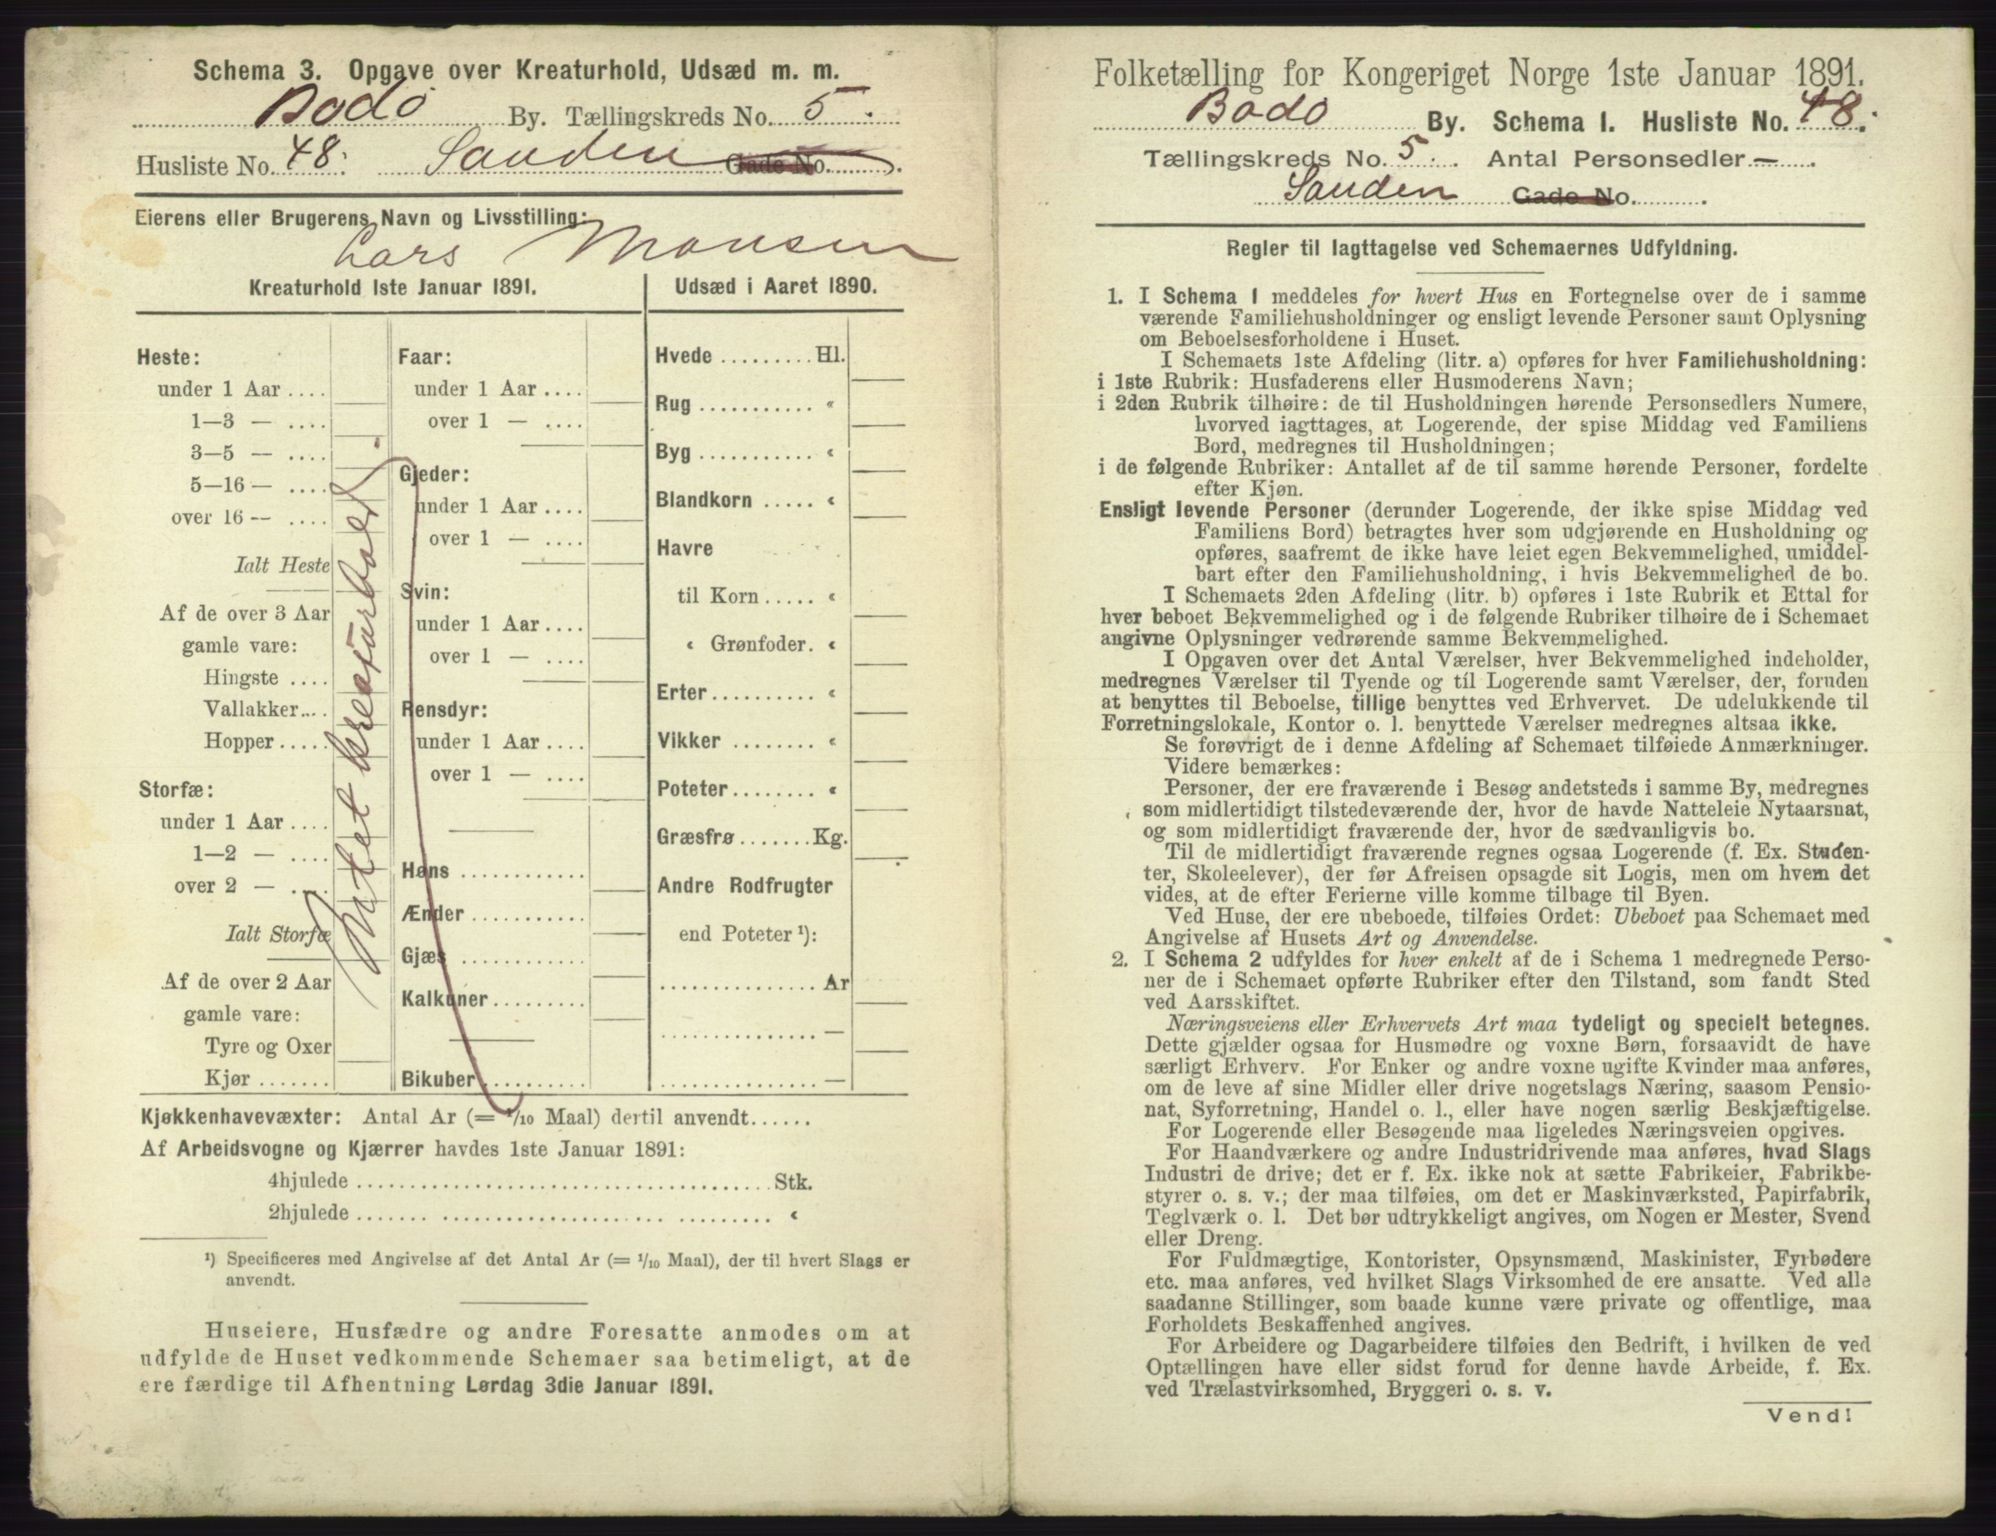 Schema 3. Opgave over Kreaturhold, Udsæd m. m.
Bodø By. Tællingskreds No. 5.
Husliste No. 48. Sanden Gade No.
Eierens eller Brugerens Navn og Livsstilling:
Lars Monsen
Kreaturhold 1ste Januar 1891.
Heste:
under 1 Aar ....
1—3 — ....
3—5 — ....
5—16 — ....
over 16 — ....
Ialt Heste
Af de over 3 Aar
gamle vare:
Hingste ....
Vallakker....
Hopper.....
Storfæ:
under 1 Aar ....
1—2 — ....
over 2 — ....
Ialt Storfæ
Af de over 2 Aar
gamle vare:
Tyre og Oxer
Kjør .......
Intet kreaturhold.
Faar:
under 1 Aar ....
over 1 — ....
Gjeder:
under 1 Aar ....
over 1 — ....
Svin:
under 1 Aar ....
over 1 — ....
Rensdyr:
under 1 Aar ....
over 1 — ....
Høns ............
Ænder ...........
Gjæs ............
Kalkuner.........
Bikuber..........
Udsæd i Aaret 1890.
Hvede ......... Hl.
Rug ........... «
Byg ........... «
Blandkorn ..... «
Havre
til Korn ..... «
« Grønfoder. «
Erter ......... «
Vikker ........ «
Poteter ........ «
Græsfrø ....... Kg.
Andre Rodfrugter
end Poteter ¹):
............... Ar
............... —
............... —
Kjøkkenhavevæxter: Antal Ar (= 1/10 Maal) dertil anvendt......
Af Arbeidsvogne og Kjærrer havdes 1ste Januar 1891:
4hjulede ........................................ Stk.
2hjulede ........................................ «
¹) Specificeres med Angivelse af det Antal Ar (= 1/10 Maal), der til hvert Slags er
anvendt.
Huseiere, Husfædre og andre Foresatte anmodes om at
udfylde de Huset vedkommende Schemaer saa betimeligt, at de
ere færdige til Afhentning Lørdag 3die Januar 1891.
Folketælling for Kongeriget Norge 1ste Januar 1891.
Bodø By. Schema 1. Husliste No. 48.
Tællingskreds No. 5. Antal Personsedler — .
Sanden Gade No. .
Regler til Iagttagelse ved Schemaernes Udfyldning.
1. I Schema 1 meddeles for hvert Hus en Fortegnelse over de i samme
værende Familiehusholdninger og ensligt levende Personer samt Oplysning
om Beboelsesforholdene i Huset.
I Schemaets 1ste Afdeling (litr. a) opføres for hver Familiehusholdning:
i 1ste Rubrik: Husfaderens eller Husmoderens Navn;
i 2den Rubrik tilhøire: de til Husholdningen hørende Personsedlers Numere,
hvorved iagttages, at Logerende, der spise Middag ved Familiens
Bord, medregnes til Husholdningen;
i de følgende Rubriker: Antallet af de til samme hørende Personer, fordelte
efter Kjøn.
Ensligt levende Personer (derunder Logerende, der ikke spise Middag ved
Familiens Bord) betragtes hver som udgjørende en Husholdning og
opføres, saafremt de ikke have leiet egen Bekvemmelighed, umiddel-
bart efter den Familiehusholdning, i hvis Bekvemmelighed de bo.
I Schemaets 2den Afdeling (litr. b) opføres i 1ste Rubrik et Ettal for
hver beboet Bekvemmelighed og i de følgende Rubriker tilhøire de i Schemaet
angivne Oplysninger vedrørende samme Bekvemmelighed.
I Opgaven over det Antal Værelser, hver Bekvemmelighed indeholder,
medregnes Værelser til Tyende og til Logerende samt Værelser, der, foruden
at benyttes til Beboelse, tillige benyttes ved Erhvervet. De udelukkende til
Forretningslokale, Kontor o. l. benyttede Værelser medregnes altsaa ikke.
Se forøvrigt de i denne Afdeling af Schemaet tilføiede Anmærkninger.
Videre bemærkes:
Personer, der ere fraværende i Besøg andetsteds i samme By, medregnes
som midlertidigt tilstedeværende der, hvor de havde Natteleie Nytaarsnat,
og som midlertidigt fraværende der, hvor de sædvanligvis bo.
Til de midlertidigt fraværende regnes ogsaa Logerende (f. Ex. Studen-
ter, Skoleelever), der før Afreisen opsagde sit Logis, men om hvem det
vides, at de efter Ferierne ville komme tilbage til Byen.
Ved Huse, der ere ubeboede, tilføies Ordet: Ubeboet paa Schemaet med
Angivelse af Husets Art og Anvendelse.
2. I Schema 2 udfyldes for hver enkelt af de i Schema 1 medregnede Perso-
ner de i Schemaet opførte Rubriker efter den Tilstand, som fandt Sted
ved Aarsskiftet.
Næringsveiens eller Erhvervets Art maa tydeligt og specielt betegnes.
Dette gjælder ogsaa for Husmødre og voxne Børn, forsaavidt de have
særligt Erhverv. For Enker og andre voxne ugifte Kvinder maa anføres,
om de leve af sine Midler eller drive nogetslags Næring, saasom Pensio-
nat, Syforretning, Handel o. l., eller have nogen særlig Beskjæftigelse.
For Logerende eller Besøgende maa ligeledes Næringsveien opgives.
For Haandværkere og andre Industridrivende maa anføres, hvad Slags
Industri de drive; det er f. Ex. ikke nok at sætte Fabrikeier, Fabrikbe-
styrer o. s. v.; der maa tilføies, om det er Maskinværksted, Papirfabrik,
Teglværk o. l. Det bør udtrykkeligt angives, om Nogen er Mester, Svend
eller Dreng.
For Fuldmægtige, Kontorister, Opsynsmænd, Maskinister, Fyrbødere
etc. maa anføres, ved hvilket Slags Virksomhed de ere ansatte. Ved alle
saadanne Stillinger, som baade kunne være private og offentlige, maa
Forholdets Beskaffenhed angives.
For Arbeidere og Dagarbeidere tilføies den Bedrift, i hvilken de ved
Optællingen have eller sidst forud for denne havde Arbeide, f. Ex.
ved Trælastvirksomhed, Bryggeri o. s. v.
Vend!